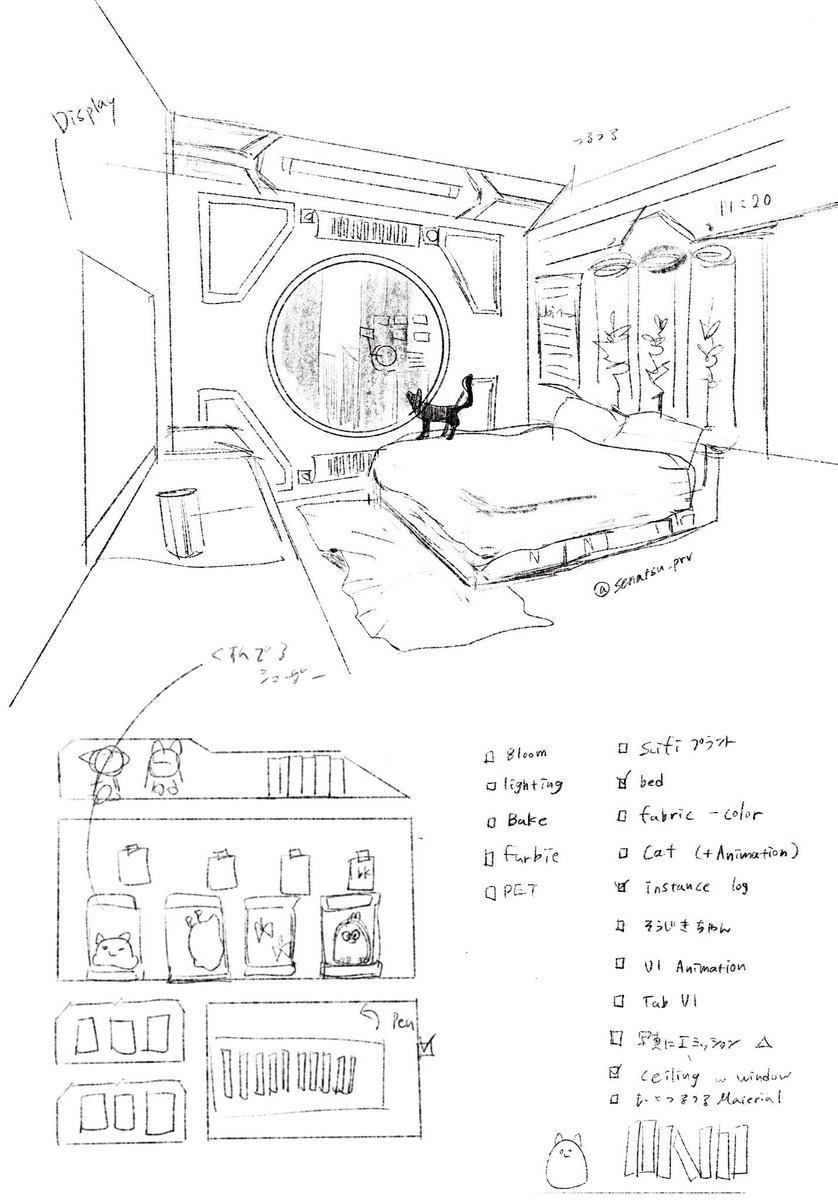 Display
つるつる
11:20
@senatsu_prv
くすんでる
シェーダー
Bloom
lighting
Bake
furbie
PET
Scifi プラント
bed
fabric - color
Cat (+Animation)
instance log
そうじきちゃん
UI Animation
Tab UI
写真にエミッション △
ceiling w window
つるつる Material
bk
Pen